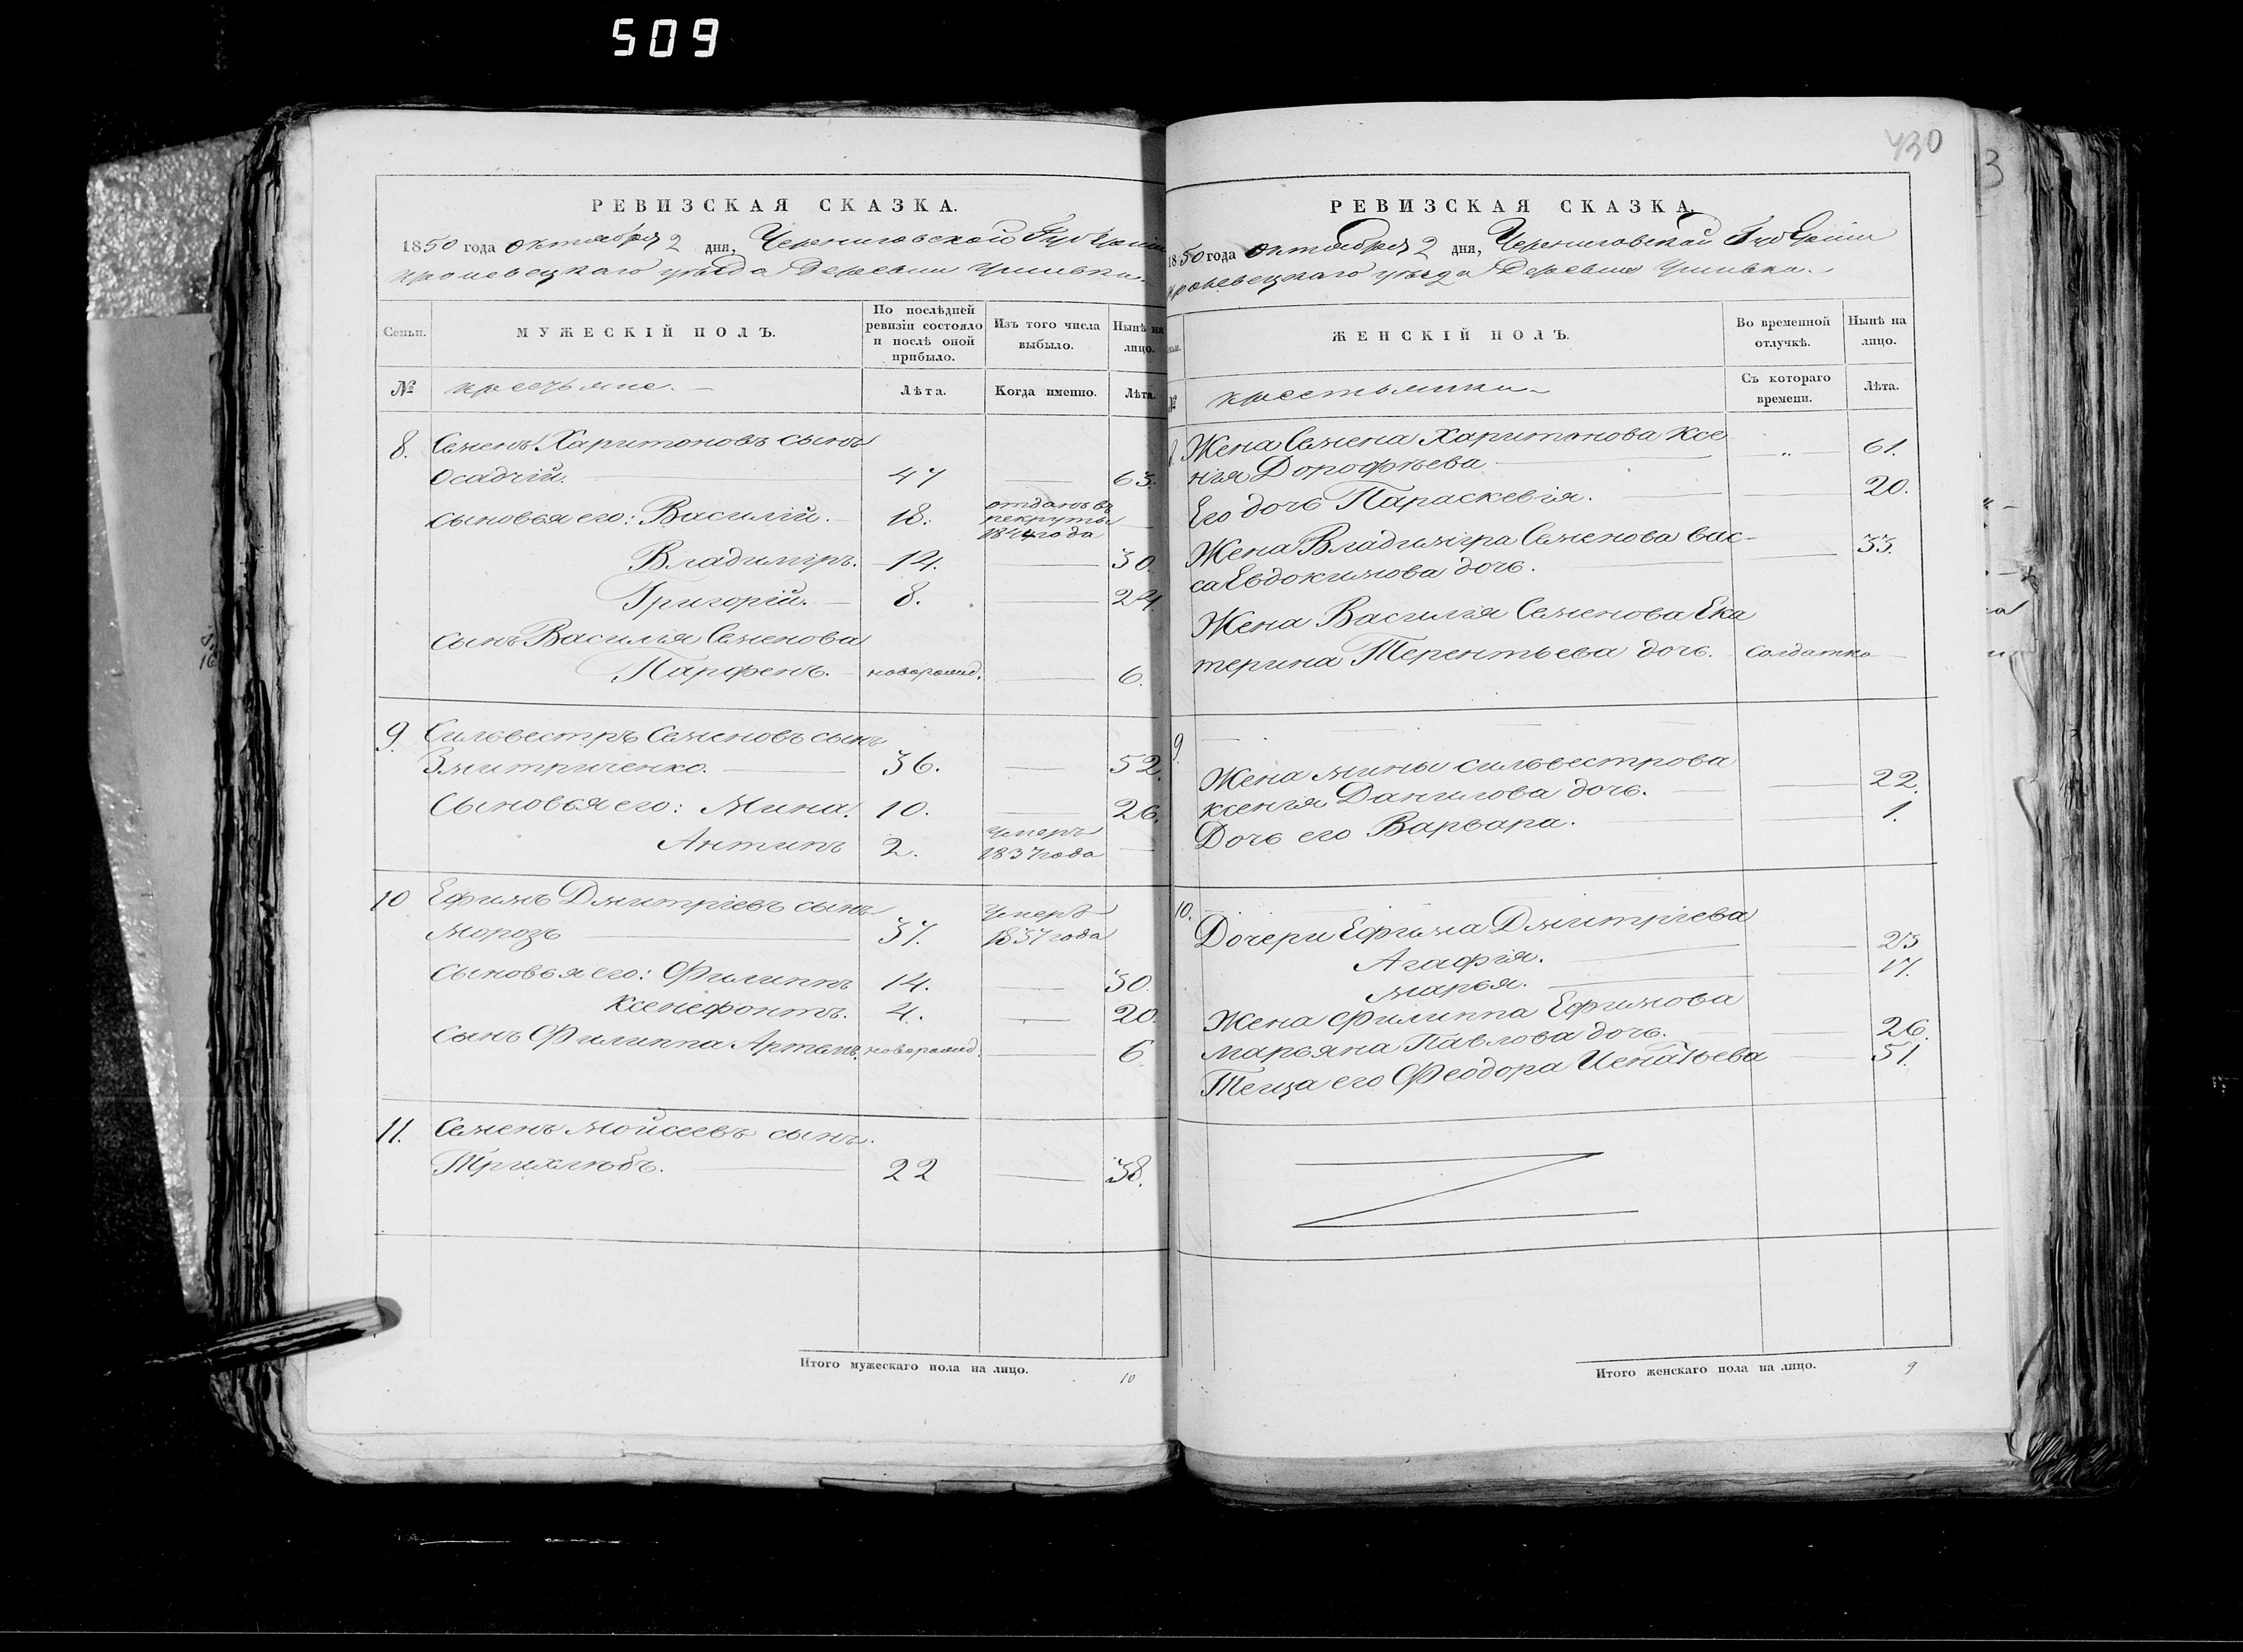 509
430
3
РЕВИЗСКАЯ СКАЗКА.
1850 года Октября 2 дня, Черниговской Губерніи
кролевецкаго уѣзда Деревни
Семьи.
МУЖЕСКІЙ ПОЛЪ.
По послѣдней ревизіи состояло и послѣ оной прибыло.
Изъ того числа выбыло.
Нынѣ на лицо.
№
крестьяне.
Лѣта.
Когда именно.
Лѣта.
8. Семенъ Харитоновъ сынъ
Осадчій. 47 63.
сыновья его: Василій. 18. отданъ въ рекруты 1844 года
Владиміръ. 14. 30.
Григорій. 8. 24.
сынъ Василія Семенова
Парфенъ. новорожд. 6.
9. Сильвестръ Семеновъ сынъ
Змитриченко. 36. 52.
Сыновья его: Мина. 10. 26.
Антипъ 2. умеръ 1837 года
10 Ефимъ Дмитріевъ сынъ
Морозъ 37. умеръ 1837 года
Сыновья его: Филиппъ 14. 30.
Ксенефонтъ. 4. 20.
Сынъ Филиппа новорожд. 6
11. Семенъ Мойсеевъ сынъ.
Трихлѣбъ. 22 38.
Итого мужескаго пола на лицо. 10
РЕВИЗСКАЯ СКАЗКА.
1850 года Октября 2 дня, Черниговской Губерніи
кролевецкаго уѣзда Деревни
ЖЕНСКІЙ ПОЛЪ.
Во временной отлучкѣ.
Нынѣ на лицо.
№
крестьянки
Съ котораго времени.
Лѣта.
Жена Семена Харитонова Ксе 61.
нія Дорофѣева
Его дочь Параскевія. 20.
Жена Владиміра Семенова Вас- 33.
са Евдокимова дочь.
Жена Василія Семенова Ека
терина Терентьева дочь. Солдатка
9.
Жена Мины Сильвестрова
Ксенія Данилова дочь. 22.
Дочь его Варвара. 1.
10.
Дочери Ефима Дмитріева
Агафія. 23
Марья. 17.
Жена Филиппа Ефимова
Марьяна Павлова дочь. 26.
Теща его Феодора 51.
Итого женскаго пола на лицо. 9